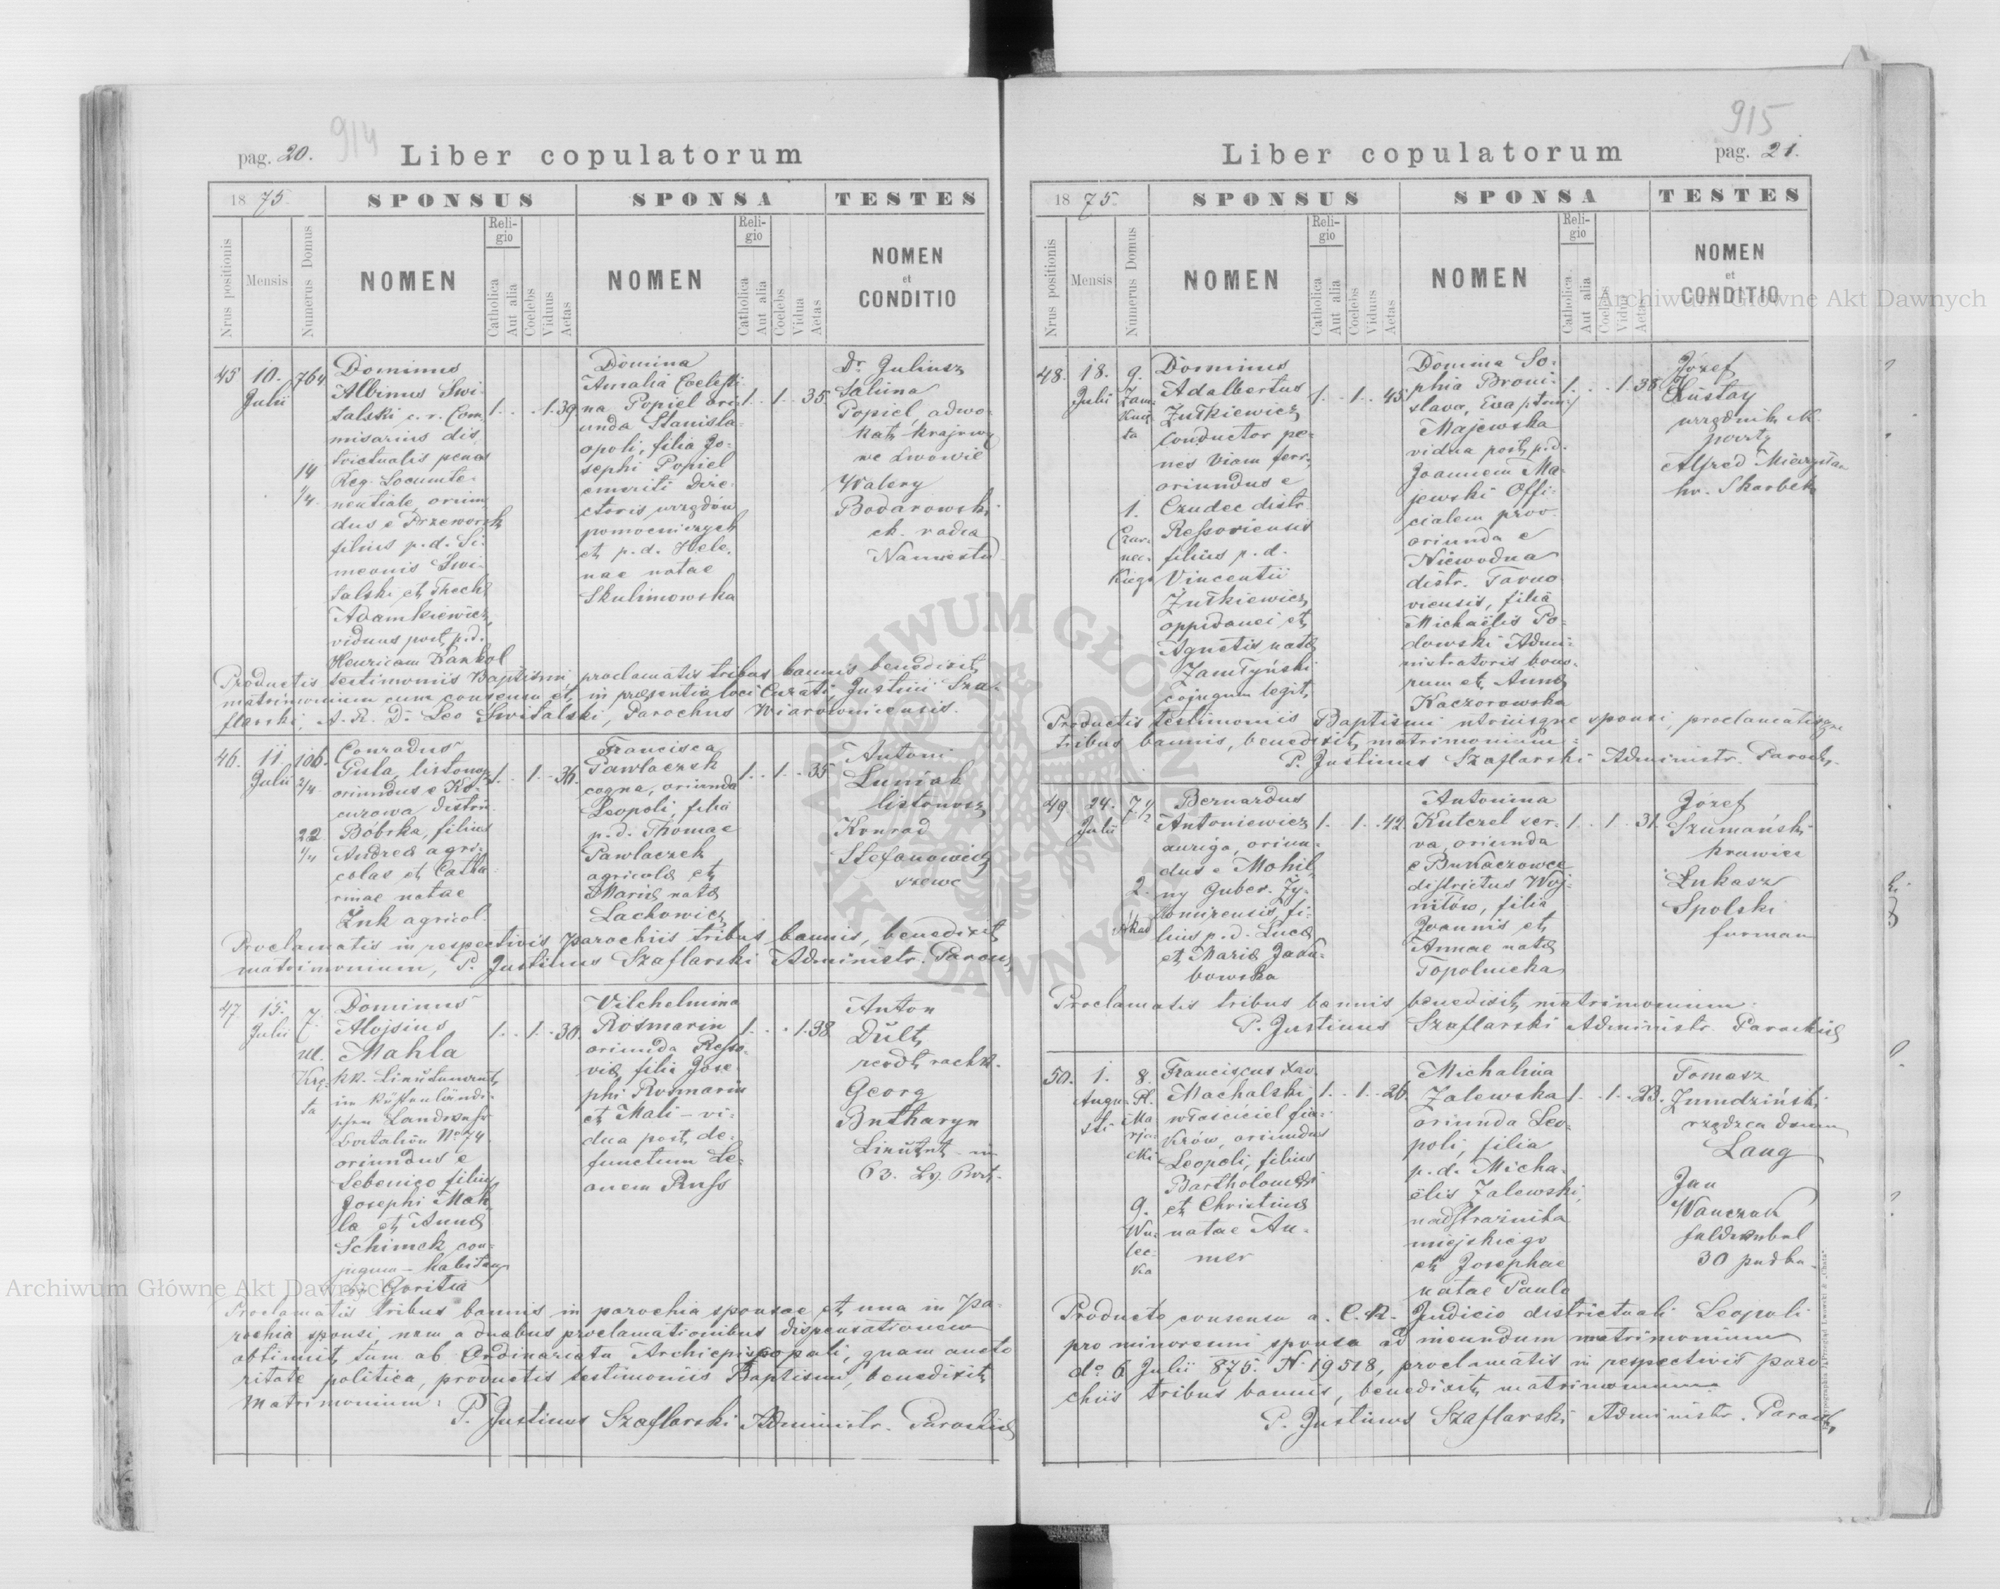 914
pag. 20.
Liber copulatorum
1875.
SPONSUS
SPONSA
TESTES
Nrus positionis
Mensis
Numerus Domus
NOMEN
Religio
Catholica
Aut alia
Coelebs
Viduus
Aetas
NOMEN
Religio
Catholica
Aut alia
Coelebs
Vidua
Aetas
NOMEN
et
CONDITIO
45 10. Julii 764 14 1/4.
Dominus
Albinus Swi-
talski c. r. Com-
misarius dis-
trictualis penes
Reg. Locumte-
nentiale, oriun-
dus e Przeworsk
filius p. d. Si-
meonis Swi-
talski et Thecla
Adamkiewicz,
viduus post p. d.
Henricam Kankol
1. . .1.39
Domina
Amalia Coelesti-
na Popiel ori-
unda Stanisla-
opoli, filia Jo-
sephi Popiel
emeriti dire-
ctoris urzędów
pomocniczych
et p. d. Hele-
nae natae
Skulimowska
1. . 1. . 35
Dr Juliusz
Saliina
Popiel, adwo-
kat krajowy
we Lwowie
Walery
Bodarowski
ck. radca
Namiestn.
Productis testimoniis Baptismi, proclamatis tribus bannis benedixit
matrimonium cum consensu et in praesentia loci Curati, Justini Sza-
flarski, A. R. D. Leo Switalski, Parochus Wiarowniensis.
46. 11. Julii 106. 2/4 22 1/4
Conradus
Gula, listonosz
oriundus e Ko-
curowa distric.
Bóbrka, filius
Andrea agri-
colae et Catha-
rinae natae
Żuk agricol.
1. . 1. . 36.
Francisca
Pawlaczek
cogna, oriunda
Leopoli filia
p. d. Thomae
Pawlaczek
agricola et
Maria nata
Lachowicz
1. . 1. . 35
Antoni
Luniak
listonosz
Konrad
Stefanowicz
szewc
Proclamatis in respectivis Parochiis tribus bannis, benedixit
matrimonium, P. Justinus Szaflarski Administr. Paroch.
47 15. Julii 7. ul. Krę-ta
Dominus
Alojsius
Mahla
kk. Lieutenant
im Küstenländi-
schen Landwehr
Bataillon No 74
oriundus e
Sebenico filius
Josephi Mah-
la et Anna
Schimek con-
jugum - habitans
in Goritia
1. . 1. . 30.
Vilhelmina
Rosmarin
oriunda Resso-
via filia Jose-
phi Rosmarin
et Mali - vi-
dua post de-
functum Le-
onem Russ
1. . . 1.38.
Anton
Dült
Georg
Butharyn
Lieutnt in
63. Lg. Bat.
Proclamatis tribus bannis in parochia sponsae et una in pa-
rochia sponsi, nam a duabus proclamationibus dispensationem
obtinuit tum ab Ordinariatu Archiepiscopali, quam aucto-
ritate politica, productis testimoniis Baptismi, benedixit
matrimonium:
P. Justinus Szaflarski Administr. Parochiae
915
Liber copulatorum
pag. 21.
1875.
SPONSUS
SPONSA
TESTES
Nrus positionis
Mensis
Numerus Domus
NOMEN
Religio
Catholica
Aut alia
Coelebs
Viduus
Aetas
NOMEN
Religio
Catholica
Aut alia
Coelebs
Vidua
Aetas
NOMEN
et
CONDITIO
48. 18. Julii 9. 1. Czar-nec-kiego
Dominus
Adalbertus
Żutkiewicz
conductor pe-
nes Viam ferr.
oriundus e
Czudec distr.
Ressoviensis
filius p. d.
Vincentii
Żutkiewicz
oppidanei et
Agnetis nata
Zamłyński
conjugum legit.
1. . 1. . 45
Domina So-
phia Broni-
slava, Eva
Majewska
vidua post p. d.
Joannem Ma-
jewski Offi-
cialem prov.
oriunda e
Niewodna
distr. Tarno-
viensis, filia
Michaëlis Po-
dowski Admi-
nistratoris bono-
rum et Anna
Kaczorowska
1. . . 1.38.
Józef
Kustay
urzędnik
poczty
Alfred Mieczysław
hr. Skarbek
Productis testimoniis Baptismi utriusque sponsi, proclamatisque
tribus bannis, benedixit matrimonium:
P. Justinus Szaflarski Administr. Paroch.
49 24. Julii 7 1/2 2.
Bernardus
Antoniewicz
auriga, oriun-
dus e Mohil-
ny Guber. Zy-
tomirensis, fi-
lius p. d. Luca
et Maria Jaku-
bowska
1. . 1. . 42
Antonina
Kutczel ser-
va, oriunda
e Bukaczowce
districtus Woj-
niłów, filia
Joannis et
Annae nata
Topolnicka
1. . 1. . 31.
Józef
Szumański
krawiec
Łukasz
Spolski
furman
Proclamatis tribus bannis benedixit matrimonium:
P. Justinus Szaflarski Administr. Parochiae
50. 1. Augusti 8. Pl. Ma-rja-cki 9. Wu-lec-ka
Franciscus Xav.
Machalski
właściciel fia-
krów, oriundus
Leopoli, filius
Bartholomaei
et Christina
natae Au-
mer
1. . 1. . 26.
Michalina
Zalewska
oriunda Leo-
poli, filia
p. d. Micha-
ëlis Zalewski,
nadstrażnika
miejskiego
et Josephae
natae Paulo
1. . 1. . 23.
Tomasz
Żmudziński
rządzca domu
Lang
Jan
Wanczak
feldwebel
30 pułku
Producto consensu a C. R. Judicio districtuali Leopoli
pro minorenni sponsa ad ineundum matrimonium
do 6 Julii 875. N. 19518, proclamatis in respectivis paro-
chiis tribus bannis, benedixit matrimonium:
P. Justinus Szaflarski Administr. Paroch.
Archiwum Główne Akt Dawnych
Archiwum Główne Akt Dawnych
ARCHIWUM GŁÓWNE AKT DAWNYCH